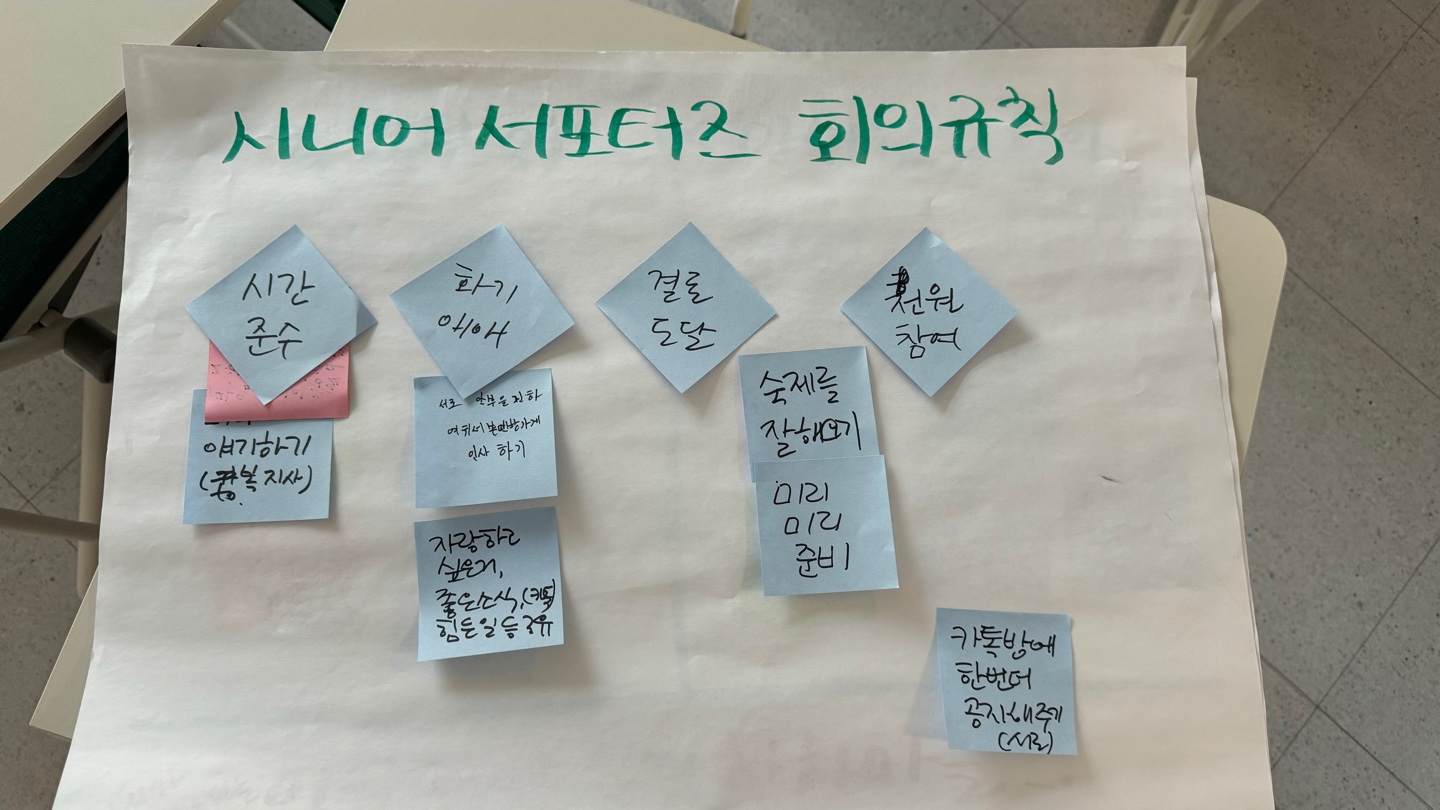 시니어 서포터즈 회의규칙
시간
준수
얘기하기
지사)
화기
애애
서로 안부를 전하
인사 하기
자랑하고
싶은거,
좋은소식,
힘든일 등 공유
결론
도달
숙제를
잘해오기
미리
미리
준비
전원
참여
카톡방에
한번더
공지해주기
(서로)